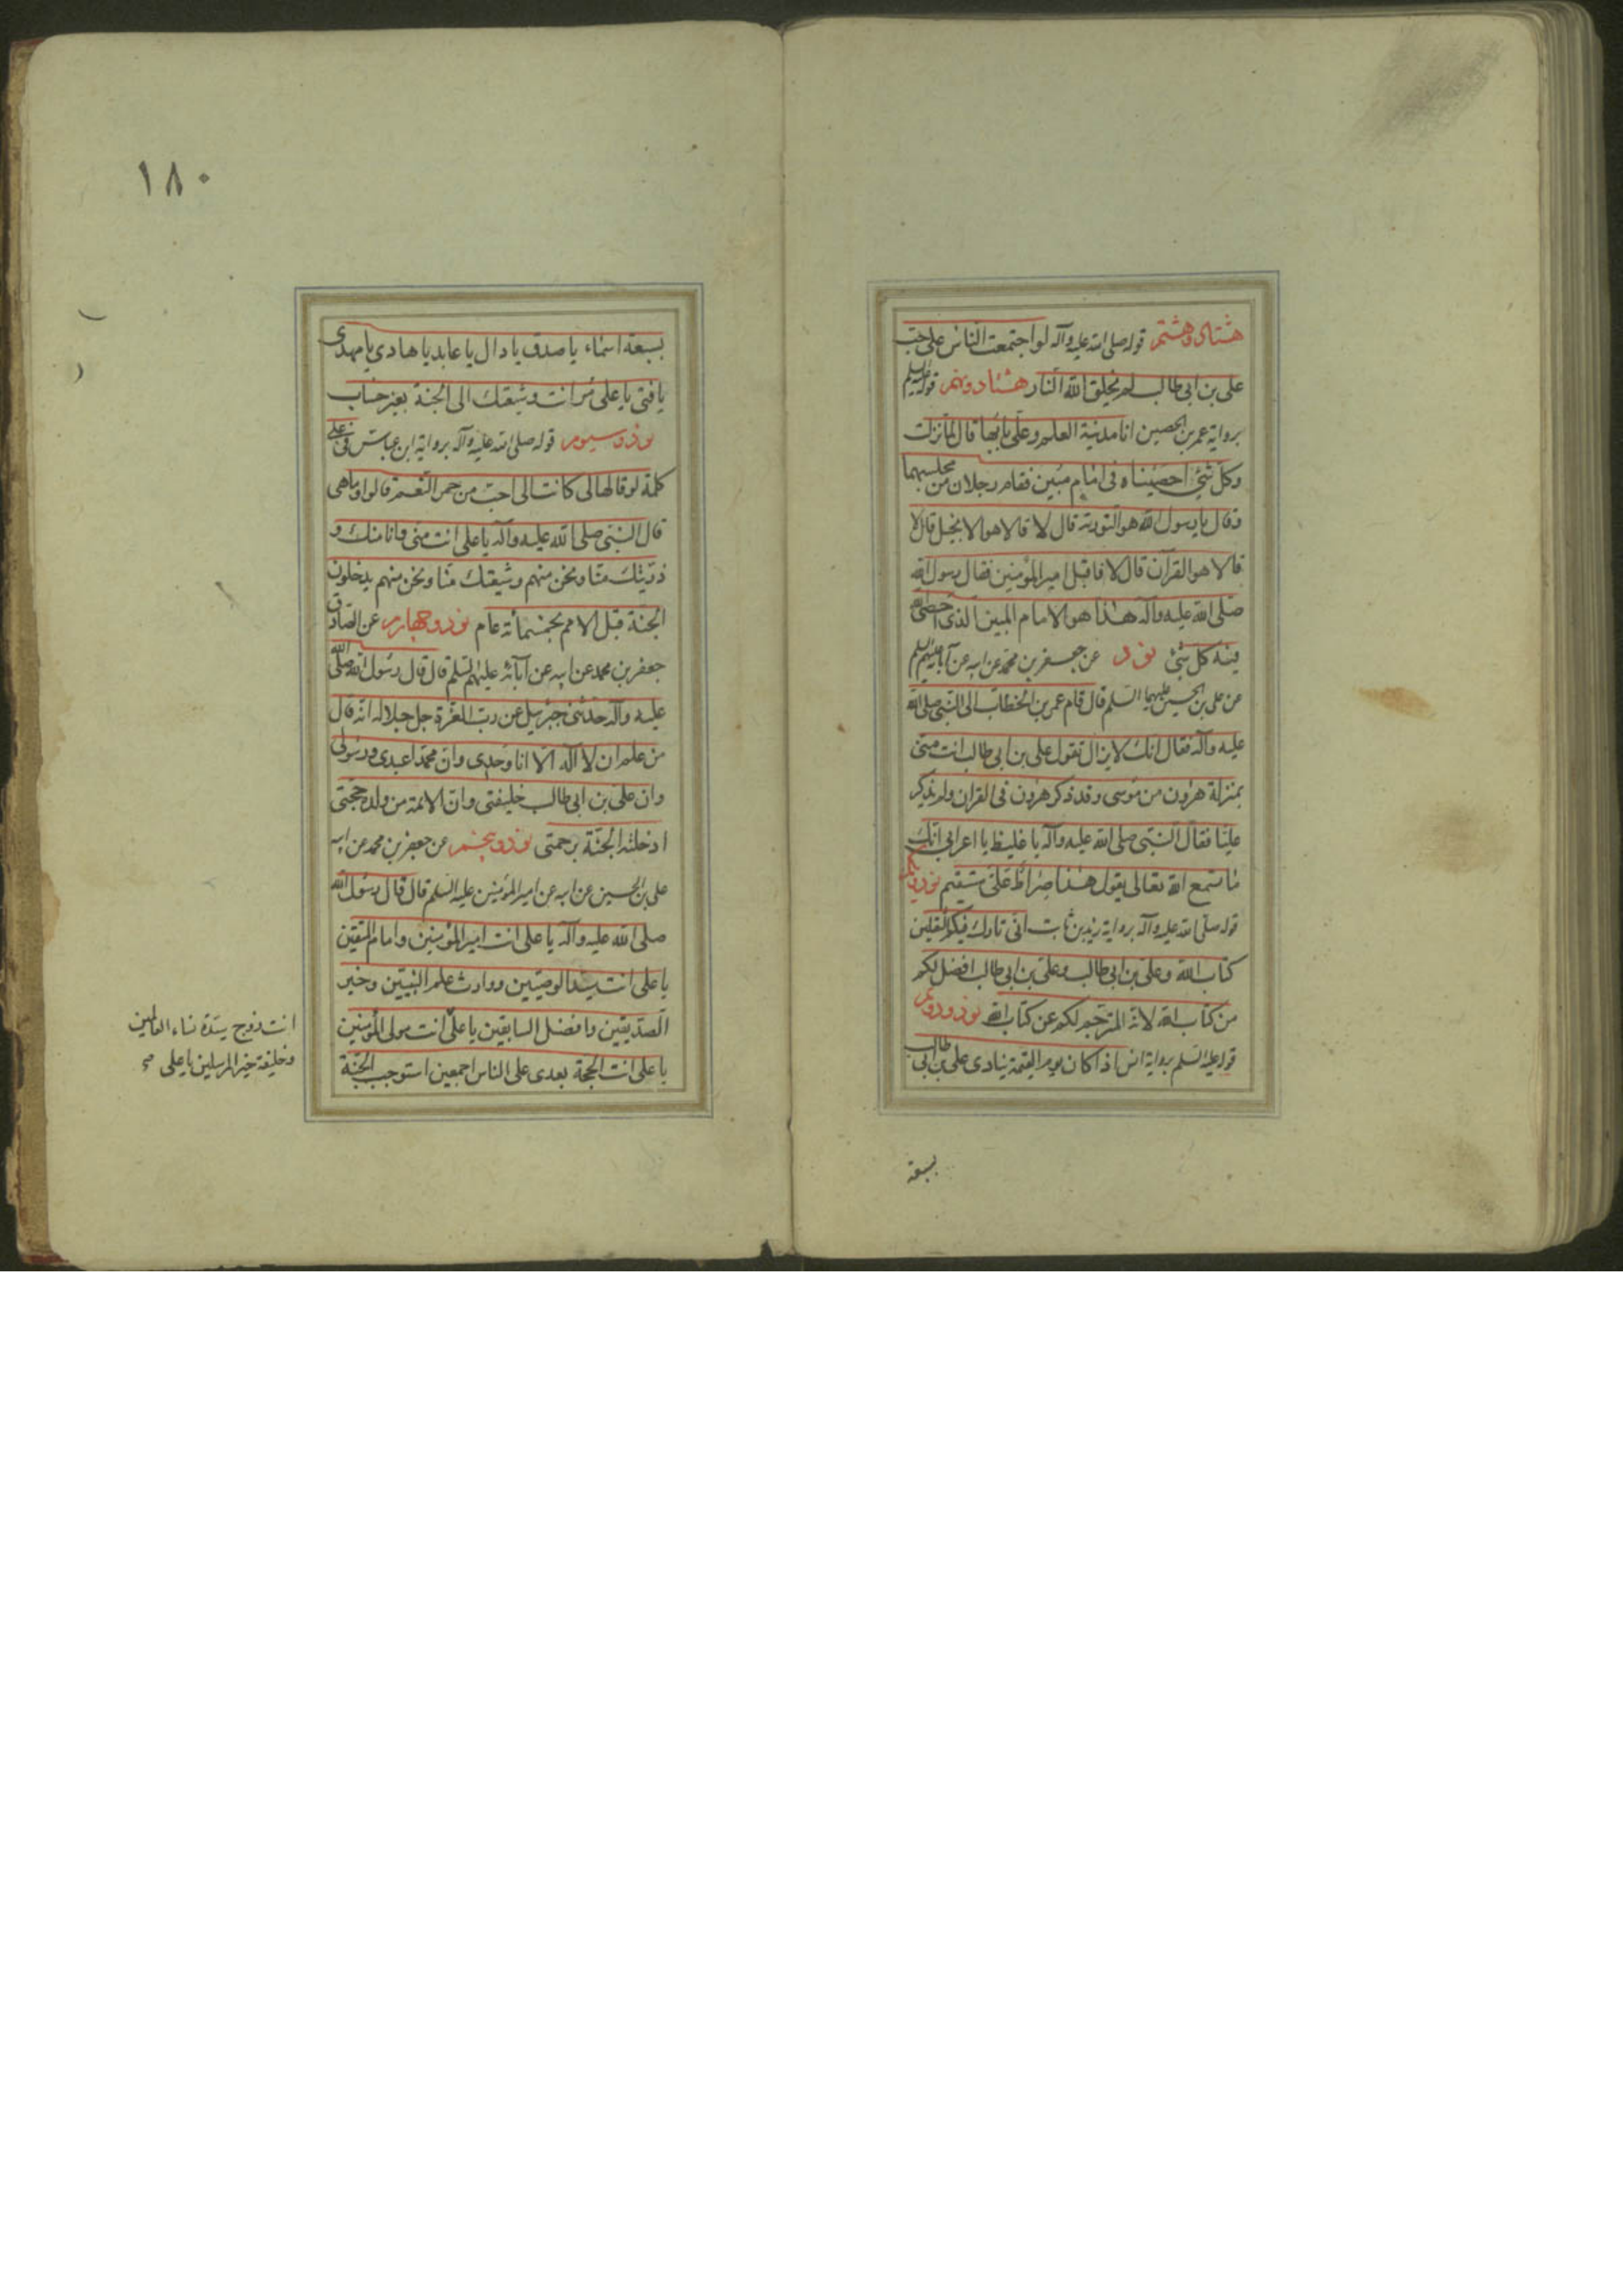 هشتاد و هشتم قوله صلى الله عليه وآله لو اجتمعت الناس على حب
على بن ابى طالب لم يخلق الله النار هشتاد و نهم قوله عليه السلم
برواية عمر بن الحصين انا مدينة العلم وعلى بابها قال لما نزلت
وكل شئ احصيناه فى امام مبين فقام رجلان من مجلسهما
وقال يا رسول الله هو التورية قال لا قالا هو الانجيل قال لا
قالا هو القرآن قال لا فاقبل امير المؤمنين فقال رسول الله
صلى الله عليه وآله هذا هو الامام المبين الذى احصى الله
فيه كل شئ نود عن جعفر بن محمد عن ابيه عن آبائه عليهم السلم
عن على بن الحسين عليهما السلم قال قام عمر بن الخطاب الى النبى صلى الله
عليه وآله فقال انك لا يزال تقول على بن ابى طالب انت منى
بمنزلة هرون من موسى وقد ذكر هرون فى القران ولم يذكر
عليا فقال النبى صلى الله عليه وآله يا غليظ يا اعرابى انك
ما تسمع الله تعالى يقول هذا صراط على مستقيم نود و يكم
قوله صلى الله عليه وآله برواية زيد بن ثابت انى تارك فيكم الثقلين
كتاب الله وعلى بن ابى طالب وعلى بن ابى طالب افضل لكم
من كتاب الله لانه المترجم لكم عن كتاب الله نود و دويم
قوله عليه السلم برواية انس اذا كان يوم القيمة ينادى على بن ابى طالب
بسبعة
١٨٠
بسبعة اسماء يا صدق يا دال يا عابد يا هادى يا مهدى
يا فتى يا على مر انت وشيعتك الى الجنة بغير حساب
نود و سيوم قوله صلى الله عليه وآله برواية ابن عباس فى على
كلمة لو قالها لى كانت الى احب من حمر النعم قالوا وما هى
قال النبى صلى الله عليه وآله يا على انت منى وانا منك و
ذريتك منا ونحن منهم وشيعتك منا ونحن منهم يدخلون
الجنة قبل الامم بخمسمائة عام نود و چهارم عن الصادق
جعفر بن محمد عن ابيه عن آبائه عليهم السلم قال قال رسول الله صلى الله
عليه وآله حدثنى جبرئيل عن رب العزة جل جلاله انه قال
من علم ان لا اله الا انا وحدى وان محمدا عبدى ورسولى
وان على بن ابى طالب خليفتى وان الائمة من ولده حججى
ادخلته الجنة برحمتى نود و پنجم عن جعفر بن محمد عن ابيه
على بن الحسين عن ابيه عن امير المؤمنين عليه السلم قال قال رسول الله
صلى الله عليه وآله يا على انت امير المؤمنين وامام المتقين
يا على انت سيد الوصيين ووارث علم النبيين وخير
الصديقين وافضل السابقين يا على انت مولى المؤمنين
يا على انت الحجة بعدى على الناس اجمعين استوجب الجنة
انت زوج سيدة نساء العالمين
وخليفة خير المرسلين يا على